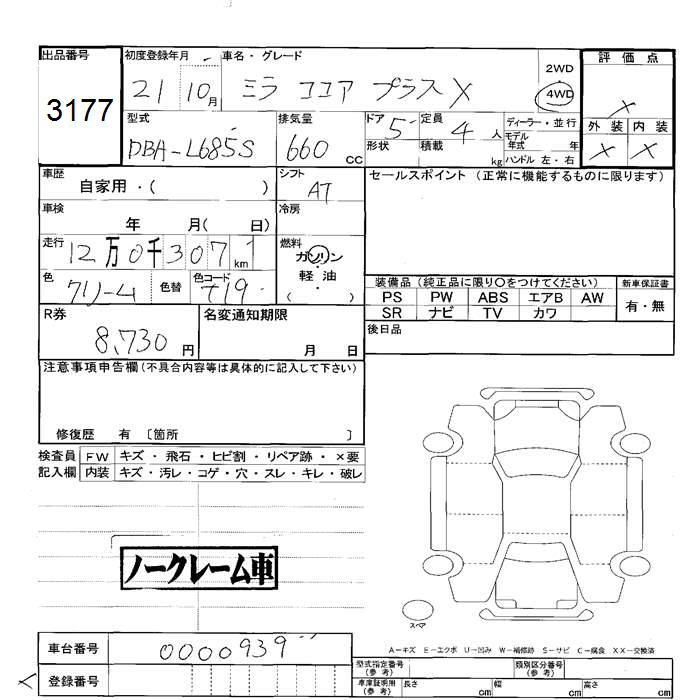 出品番号
3177
初度登録年月
21 10月
車名・グレード
ミラ ココア プラス X
2WD
4WD
評価点
X
外装 内装
X X
型式
DBA-L685S
排気量
660 cc
ドア 5
形状
定員 4 人
積載 kg
ディーラー・並行
モデル
年式 年
ハンドル 左・右
車歴
自家用・( )
シフト
AT
セールスポイント (正常に機能するものに限ります)
車検
年 月( 日)
冷房
走行
12万0千307km
燃料
ガソリン
・
軽・油
( )
色
クリーム
色替
色コード
T19
装備品 (純正品に限り○をつけてください)
PS PW ABS エアB AW
SR ナビ TV カワ
新車保証書
有・無
後日品
R券
8,730 円
名変通知期限
月 日
注意事項申告欄(不具合内容等は具体的に記入して下さい)
修復歴 有 〔箇所 〕
検査員
記入欄
FW キズ・飛石・ヒビ割・リペア跡・×要
内装 キズ・汚レ・コゲ・穴・スレ・キレ・破レ
ノークレーム車
スペア
A-キズ E-エクボ U-凹み W-補修跡 S-サビ C-腐食 XX-交換済
車台番号
0000939
登録番号
型式指定番号
(参考)
類別区分番号
(参考)
車庫証明用
(参考)
長さ cm 幅 cm 高さ cm